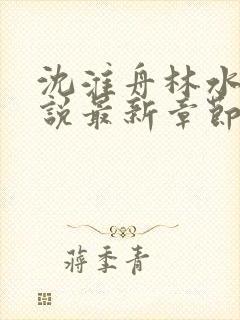 沈淮舟林水
說最新章節
蔣季青